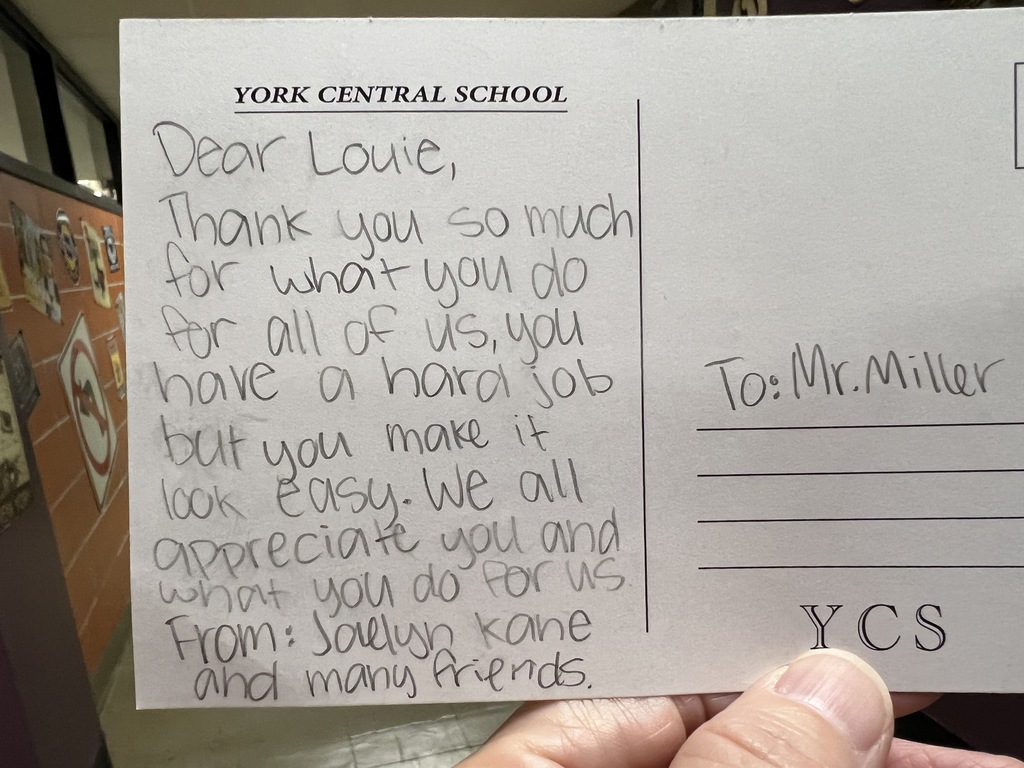 YORK CENTRAL SCHOOL
Dear Louie,
Thank you so much
for what you do
for all of us, you
have a hard job
but you make it
look easy. We all
appreciate you and
what you do for us.
From: Jaelyn Kane
and many friends.
To: Mr. Miller
YCS